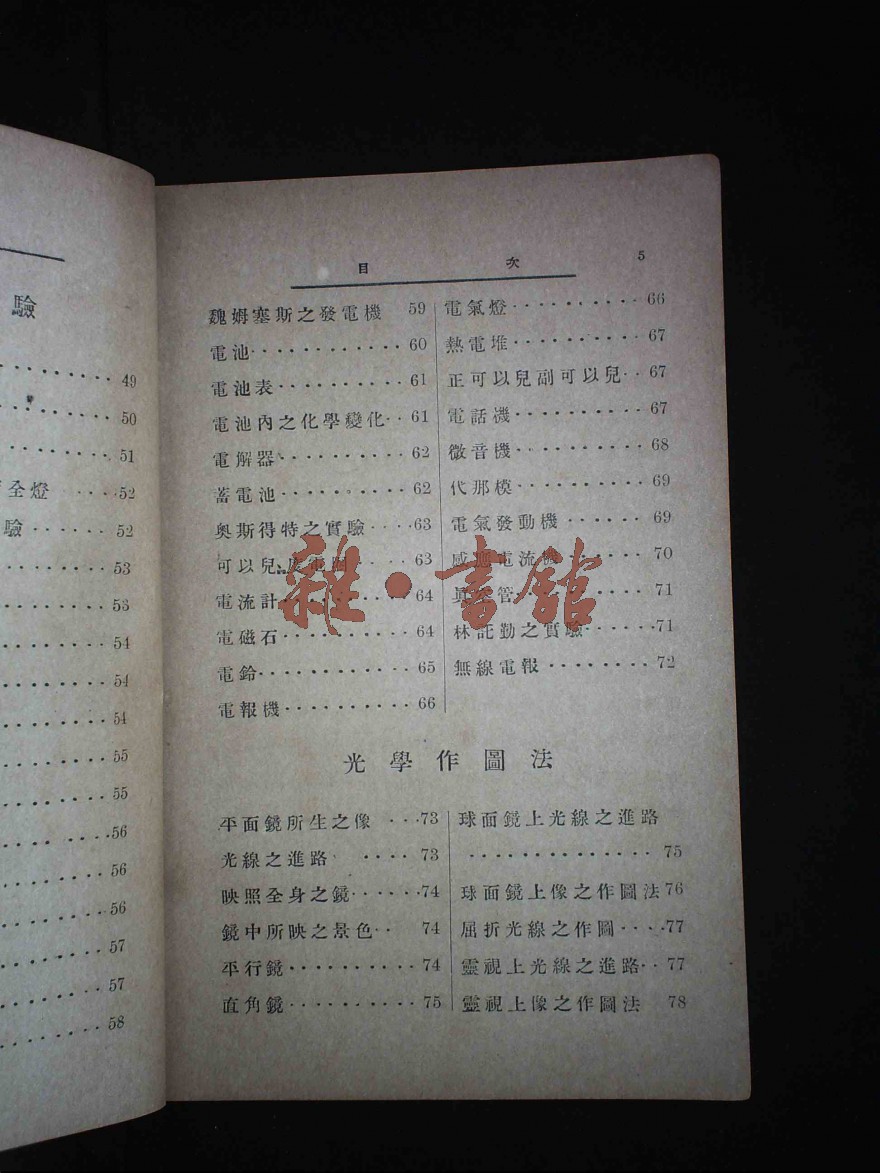 驗
49
50
51
全燈 52
驗 52
53
53
54
54
54
55
55
56
56
56
57
57
58
目 次 5
魏姆塞斯之發電機 59
電池 60
電池表 61
電池內之化學變化 61
電解器 62
蓄電池 62
奧斯得特之實驗 63
可以兒 63
電流計 64
電磁石 64
電鈴 65
電報機 66
電氣燈 66
熱電堆 67
正可以兒副可以兒 67
電話機 67
微音機 68
代那模 69
電氣發動機 69
感應電流機 70
真空管 71
林託勤之實驗 71
無線電報 72
光學作圖法
平面鏡所生之像 73
光線之進路 73
映照全身之鏡 74
鏡中所映之景色 74
平行鏡 74
直角鏡 75
球面鏡上光線之進路
75
球面鏡上像之作圖法 76
屈折光線之作圖 77
靈視上光線之進路 77
靈視上像之作圖法 78
雜·書館